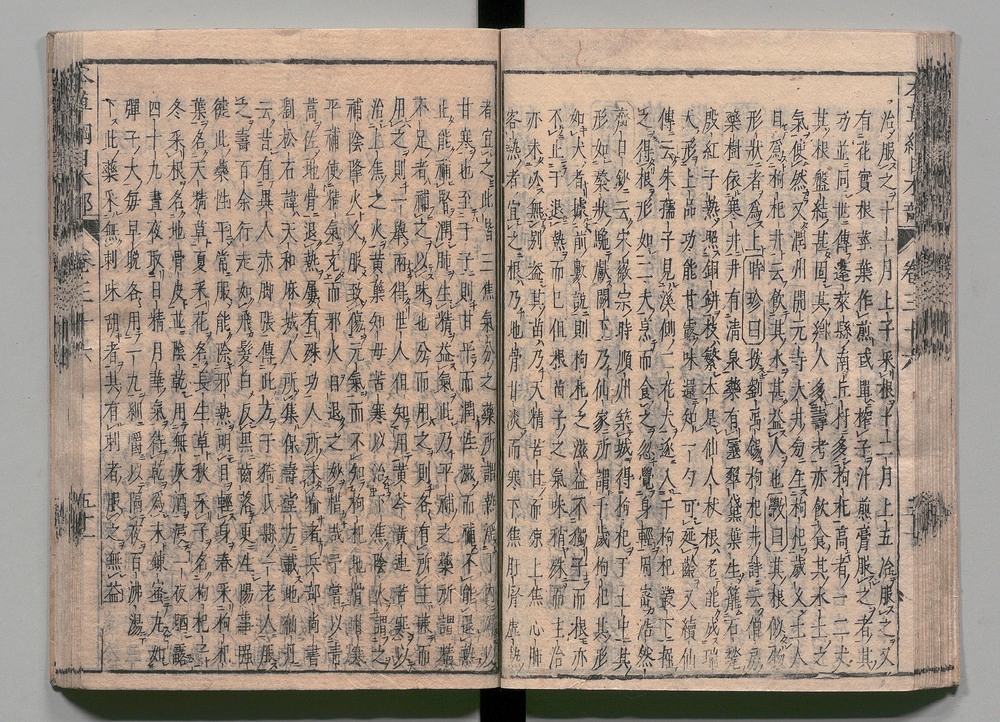 治服之十一月上子采根十二月上五除服之又
有花實根莖葉作煎或單榨子汁煎膏服之者其
功並同世傳蓬萊縣南丘村多枸杞高者一二丈
其根盤結甚固其鄉人多壽考亦飲食其水土之
氣使然又潤州開元寺大井旁生枸杞歲久土人
目爲枸杞井云飲其水甚益人也斅曰其根似物
形狀者爲上時珍曰按劉禹錫枸杞井詩云僧房
藥樹依寒井井有清泉藥有靈翠黛葉生籠石甃
殷紅子熟照銅缾枝繁本是仙人杖根老能成瑞
犬形上品功能甘露味還知一勺可延齡又續仙
傳云朱孺子見溪側二花犬逐入于枸杞叢下掘
之得根形如二犬烹而食之忽覺身輕周密浩然
齋日鈔云宋徽宗時順州築城得枸杞于土中其
形如獒狀馳獻闕下乃仙家所謂千歲枸杞其形
如犬者據前數說則枸杞之滋益不獨子而根亦
不止于退熱而已但根苗子之氣味稍殊而主治
亦未必無别蓋其苗乃天精苦甘而凉上焦心肺
客熱者宜之根乃地骨甘淡而寒下焦肝腎虛熱
者宜之此皆三焦氣分之藥所謂熱淫于内瀉以
甘寒也至于子則甘平而潤性滋而補不能退熱
止能補腎潤肺生精益氣此乃平補之藥所謂精
不足者補之以味也分而用之則各有所主兼而
用之則一舉兩得世人但知用黄芩黄連苦寒以
治上焦之火黄蘗知母苦寒以治下焦陰火謂之
補陰降火久服致傷元氣而不知枸杞地骨甘寒
平補使精氣充而邪火自退之妙惜哉予嘗以青
蒿佐地骨退熱屢有殊功人所未喻者兵部尚書
劉松石諱天和麻城人所集保壽堂方載地仙丹
云昔有異人赤脚張傳此方于猗氏縣一老人服
之壽百餘行走如飛髮白反黑齒落更生陽事强
健此藥性平常服能除邪熱明目輕身春采枸杞
葉名天精草夏采花名長生草秋采子名枸杞子
冬采根名地骨皮並陰乾用無灰酒浸一夜晒露
四十九晝夜取日精月華氣待乾爲末鍊蜜丸如
彈子大每早晚各用一丸細嚼以隔夜百沸湯
下此藥采無刺味甜者其有刺者服之無益